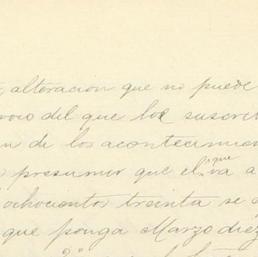 alteracion que no puede
del que los suscri
n de los acontecimien
presumir que el que va a
ochocientos treinta se
que ponga Marzo diez